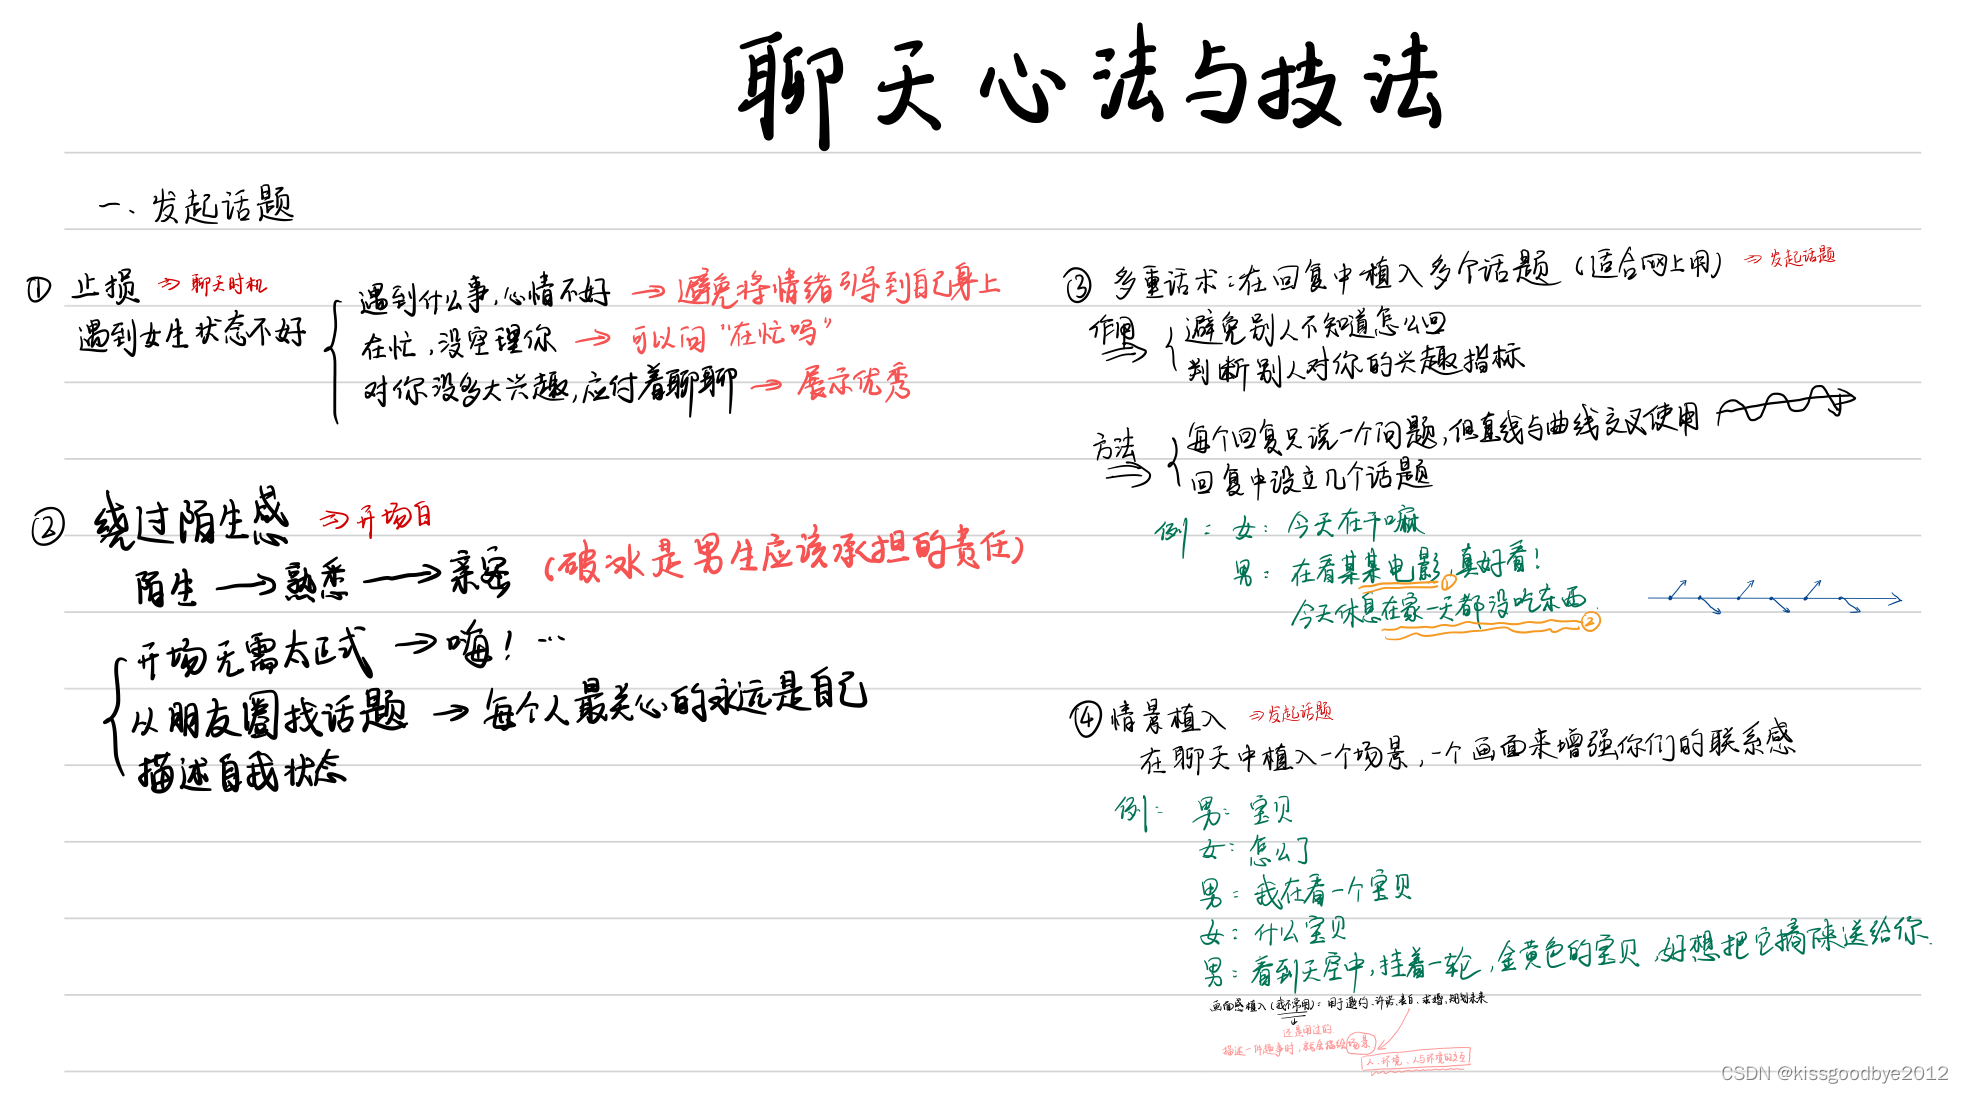 聊天心法与技法
一、发起话题
① 止损 => 聊天时机
遇到女生状态不好
遇到什么事,心情不好 → 避免将情绪引导到自己身上
在忙,没空理你 → 可以问“在忙吗”
对你没多大兴趣,应付着聊聊 → 展示优秀
② 绕过陌生感 => 开场白
陌生 → 熟悉 → 亲密 (破冰是男生应该承担的责任)
开场无需太正式 → 嗨!…
从朋友圈找话题 → 每个人最关心的永远是自己
描述自我状态
③ 多重话术:在回复中植入多个话题(适合网上用) => 发起话题
作用
避免别人不知道怎么回
判断别人对你的兴趣指标
方法
每个回复只说一个问题,但直线与曲线交叉使用
回复中设立几个话题
例: 女: 今天在干嘛
男: 在看某某电影,真好看! ①
今天休息在家一天都没吃东西. ②
④ 情景植入 => 发起话题
在聊天中植入一个场景,一个画面来增强你们的联系感
例: 男: 宝贝
女: 怎么了
男: 我在看一个宝贝
女: 什么宝贝
男: 看到天空中,挂着一轮,金黄色的宝贝,好想把它摘下来送给你.
画面感植入(我不常用): 用于邀约、许诺、表白、求婚、规划未来
还是用过的
描述一件趣事时,都会描绘场景
人、环境、人与环境的交互
CSDN @kissgoodbye2012